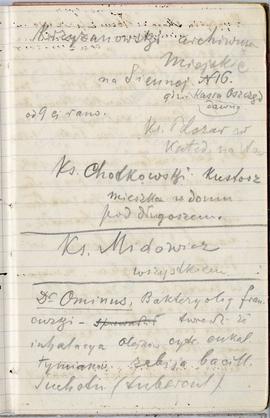 Krzyżanowski archiwum
Miejskie
na Siennej N16.
gdzie Kassa Oszczęd
dawna
od 9 ej rano.
Ks.
Ks. Chodkowski Kustosz
mieszka w domu
pod Długoszem.
Ks. Midowicz
wszystkiem
Dr Ominus, Bakteryolog fran
cuzki - twierdzi że
inhalacya olejem eukal
tymianu zabija bacill.
Suchotn (tubercul).